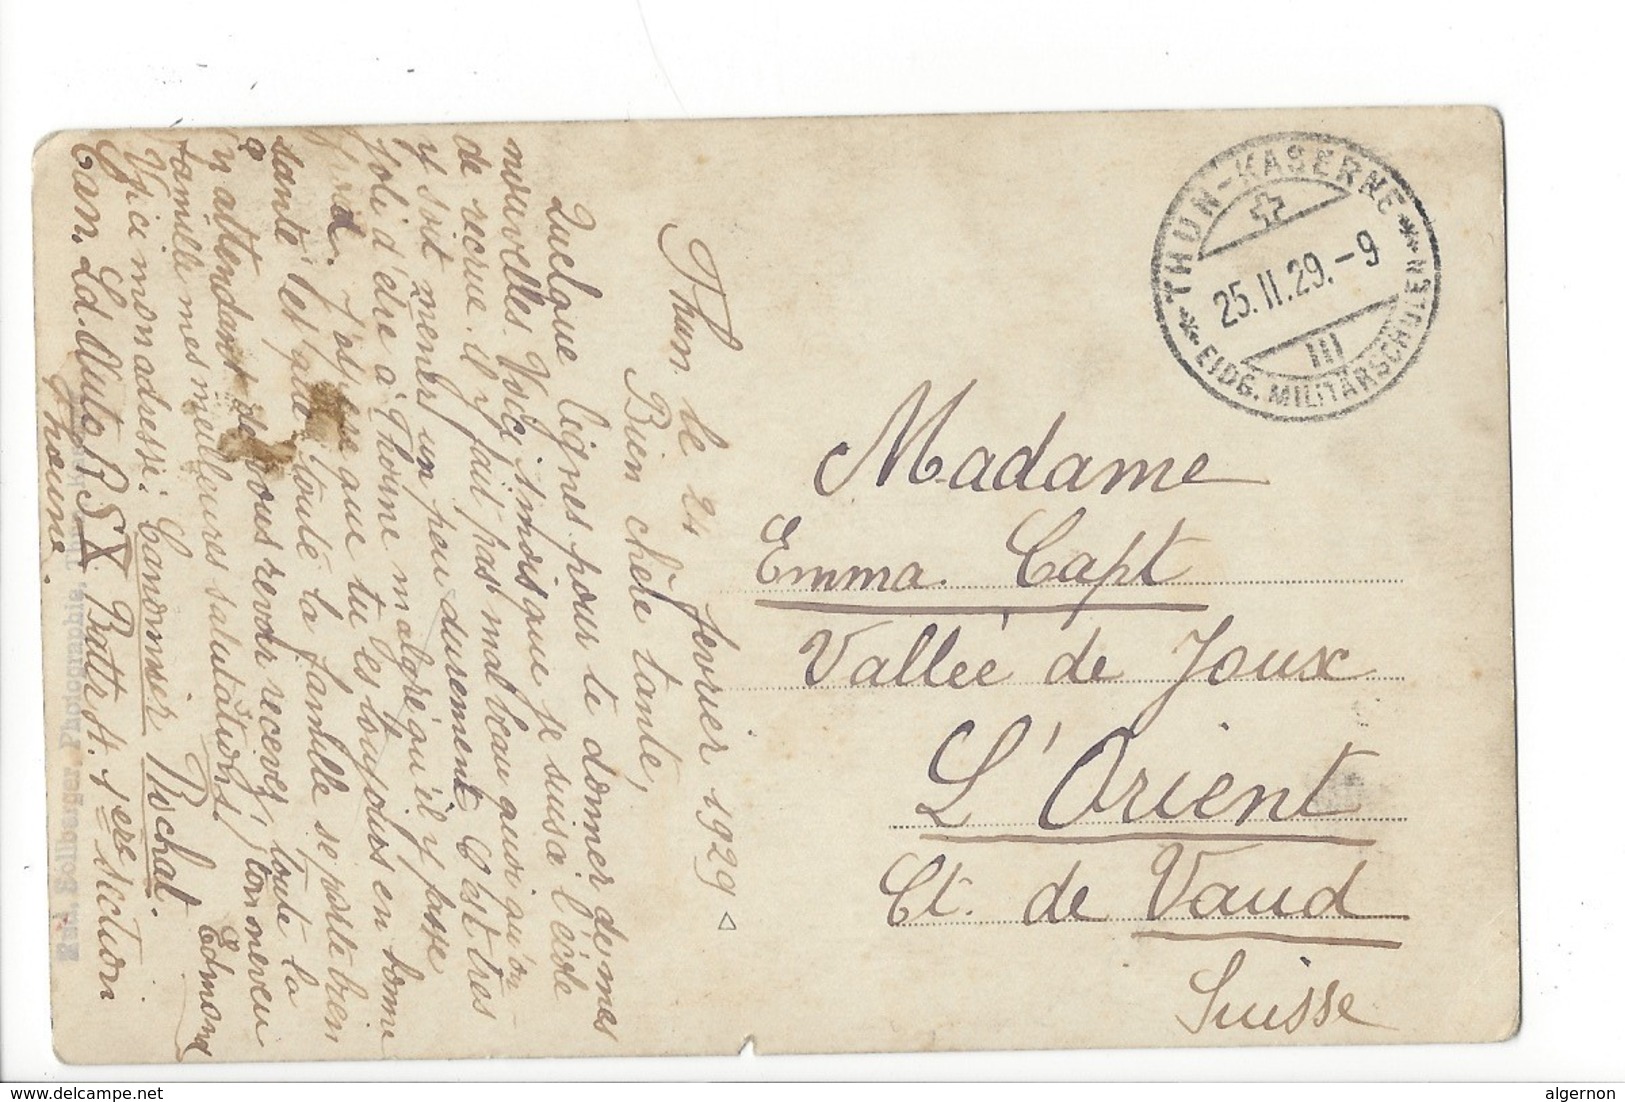 THUN-KASERNE
25.II.29.-9
III
EIDG. MILITÄRSCHULEN
Madame
Emma Capt
Vallée de Joux
L'Orient
Ct. de Vaud
Suisse
Thun le 24 fevrier 1929
Bien chère tante,
Quelque lignes pour te donner de mes
nouvelles. Voici 1 mois que je suis a l'école
de recrue. il y fait pas mal beau quoi qu'on
y soit mener un peu durement C'est tres
joli d'être à Thoune malgré qu'il y fasse
froid. J'espère que tu es toujours en bonne
santé et que toute la famille se porte bien
En attendant de vous revoir recevez, toute la
famille mes meilleures salutations, ton neveu
Edmond
Voici mon adresse: Canonnier Rochat.
Can. Ld. Auto R S X Battr 4. 1ère section
Thoune.
Sollberger, Photographie, Thun
www.delcampe.net
algernon